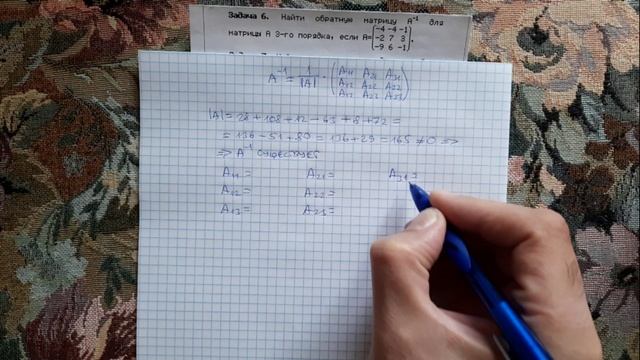 Задача 6. Найти обратную матрицу A⁻¹ для
матрицы A 3-го порядка, если A=(-4 -4 -1
-2 7 3
-9 6 -1)
A⁻¹ = 1/|A| · (A₁₁ A₂₁ A₃₁
A₁₂ A₂₂ A₃₂
A₁₃ A₂₃ A₃₃)
|A| = 28 + 108 + 12 - 63 + 8 + 72 =
= 136 - 51 + 80 = 136 + 29 = 165 ≠ 0 =>
=> A⁻¹ существует
A₁₁= A₂₁= A₃₁=
A₁₂= A₂₂=
A₁₃= A₂₃=